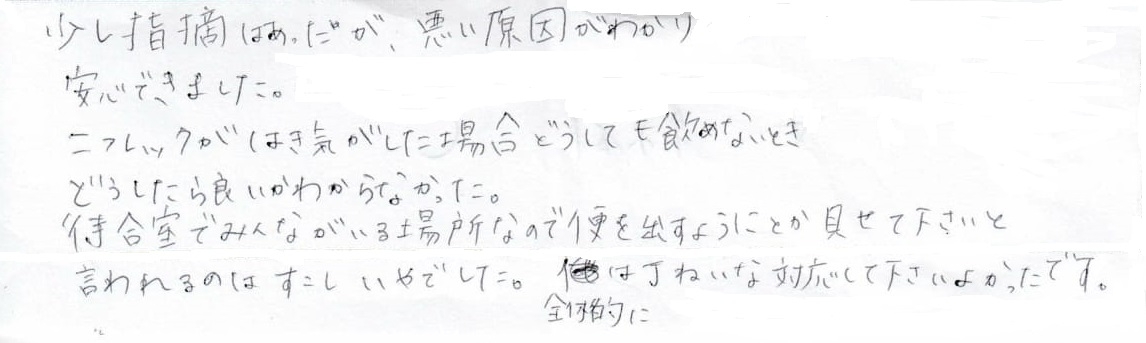 少し指摘はあっだが、悪い原因がわかり
安心できました。
ニフレックがはき気がした場合どうしてモ飲めないとき
どうしたら良いかわからなかった。
待合室でみんながいる場所なので便を出すようにとか見せて下さいと
言われるのはすこしいやでした。はてねいな対応して下さいよかったです。
全体的に